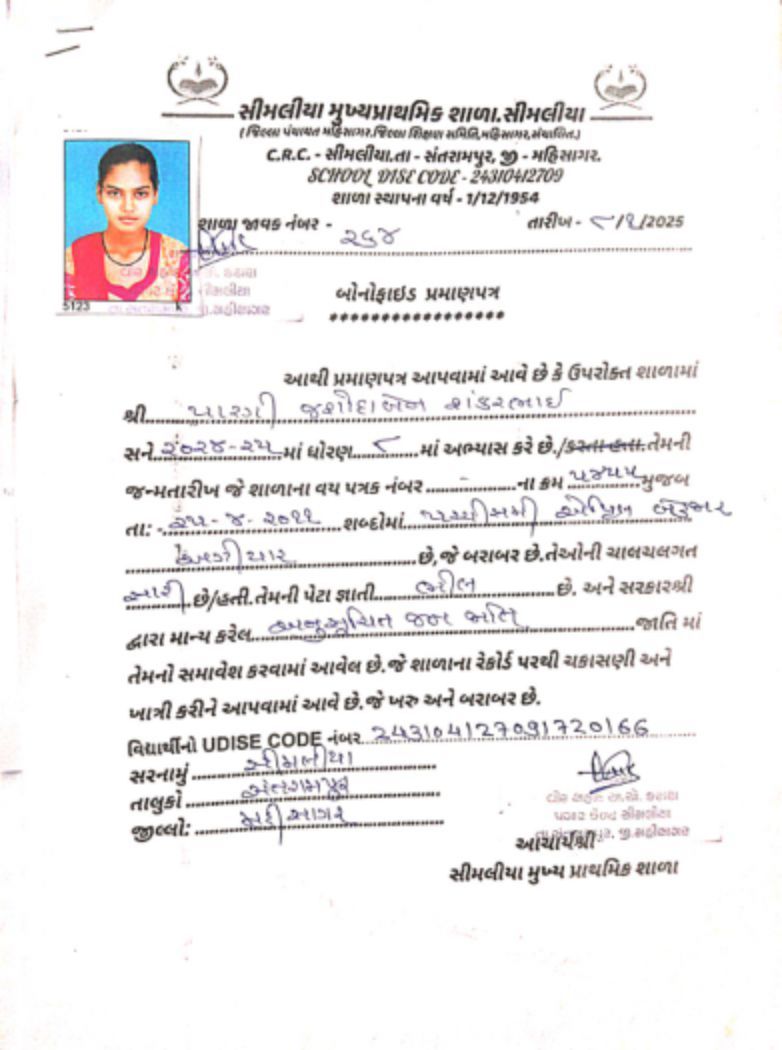 સીમલીયા મુખ્યપ્રાથમિક શાળા.સીમલીયા
( જિલ્લા પંચાયત મહિસાગર.જિલ્લા શિક્ષણ સમિતિ,મહિસાગર,સંચાલિત.)
C.R.C. - સીમલીયા.તા - સંતરામપુર, જી - મહિસાગર.
SCHOOL DISE CODE - 24310412709
શાળા સ્થાપના વર્ષ - 1/12/1954
શાળા જાવક નંબર - ૨૬૪ તારીખ - ૮/૧/2025
5123
બોનોફાઇડ પ્રમાણપત્ર
*****************
આથી પ્રમાણપત્ર આપવામાં આવે છે કે ઉપરોક્ત શાળામાં
શ્રી પારગી જશોદાબેન શંકરભાઈ
સને ૨૦૨૪-૨૫ માં ધોરણ ૮ માં અભ્યાસ કરે છે./કરતા હતા.તેમની
જન્મતારીખ જે શાળાના વય પત્રક નંબર - ના ક્રમ ૫૪૫૫ મુજબ
તા: - ૨૫-૪-૨૦૧૧ શબ્દોમાં પચ્ચીસમી એપ્રિલ બેહજાર
અગીયાર છે,જે બરાબર છે.તેઓની ચાલચલગત
સારી છે/હતી.તેમની પેટા જ્ઞાતી ભીલ છે. અને સરકારશ્રી
દ્વારા માન્ય કરેલ અનુસૂચિત જન જાતિ જાતિ માં
તેમનો સમાવેશ કરવામાં આવેલ છે.જે શાળાના રેકોર્ડ પરથી ચકાસણી અને
ખાત્રી કરીને આપવામાં આવે છે.જે ખરુ અને બરાબર છે.
વિદ્યાર્થીનો UDISE CODE નંબર 243104127091720166
સરનામું સીમલીયા
તાલુકો સંતરામપુર
જીલ્લો: મહીસાગર
પગાર કેન્દ્ર સીમલીયા
આચાર્યશ્રી
સીમલીયા મુખ્ય પ્રાથમિક શાળા